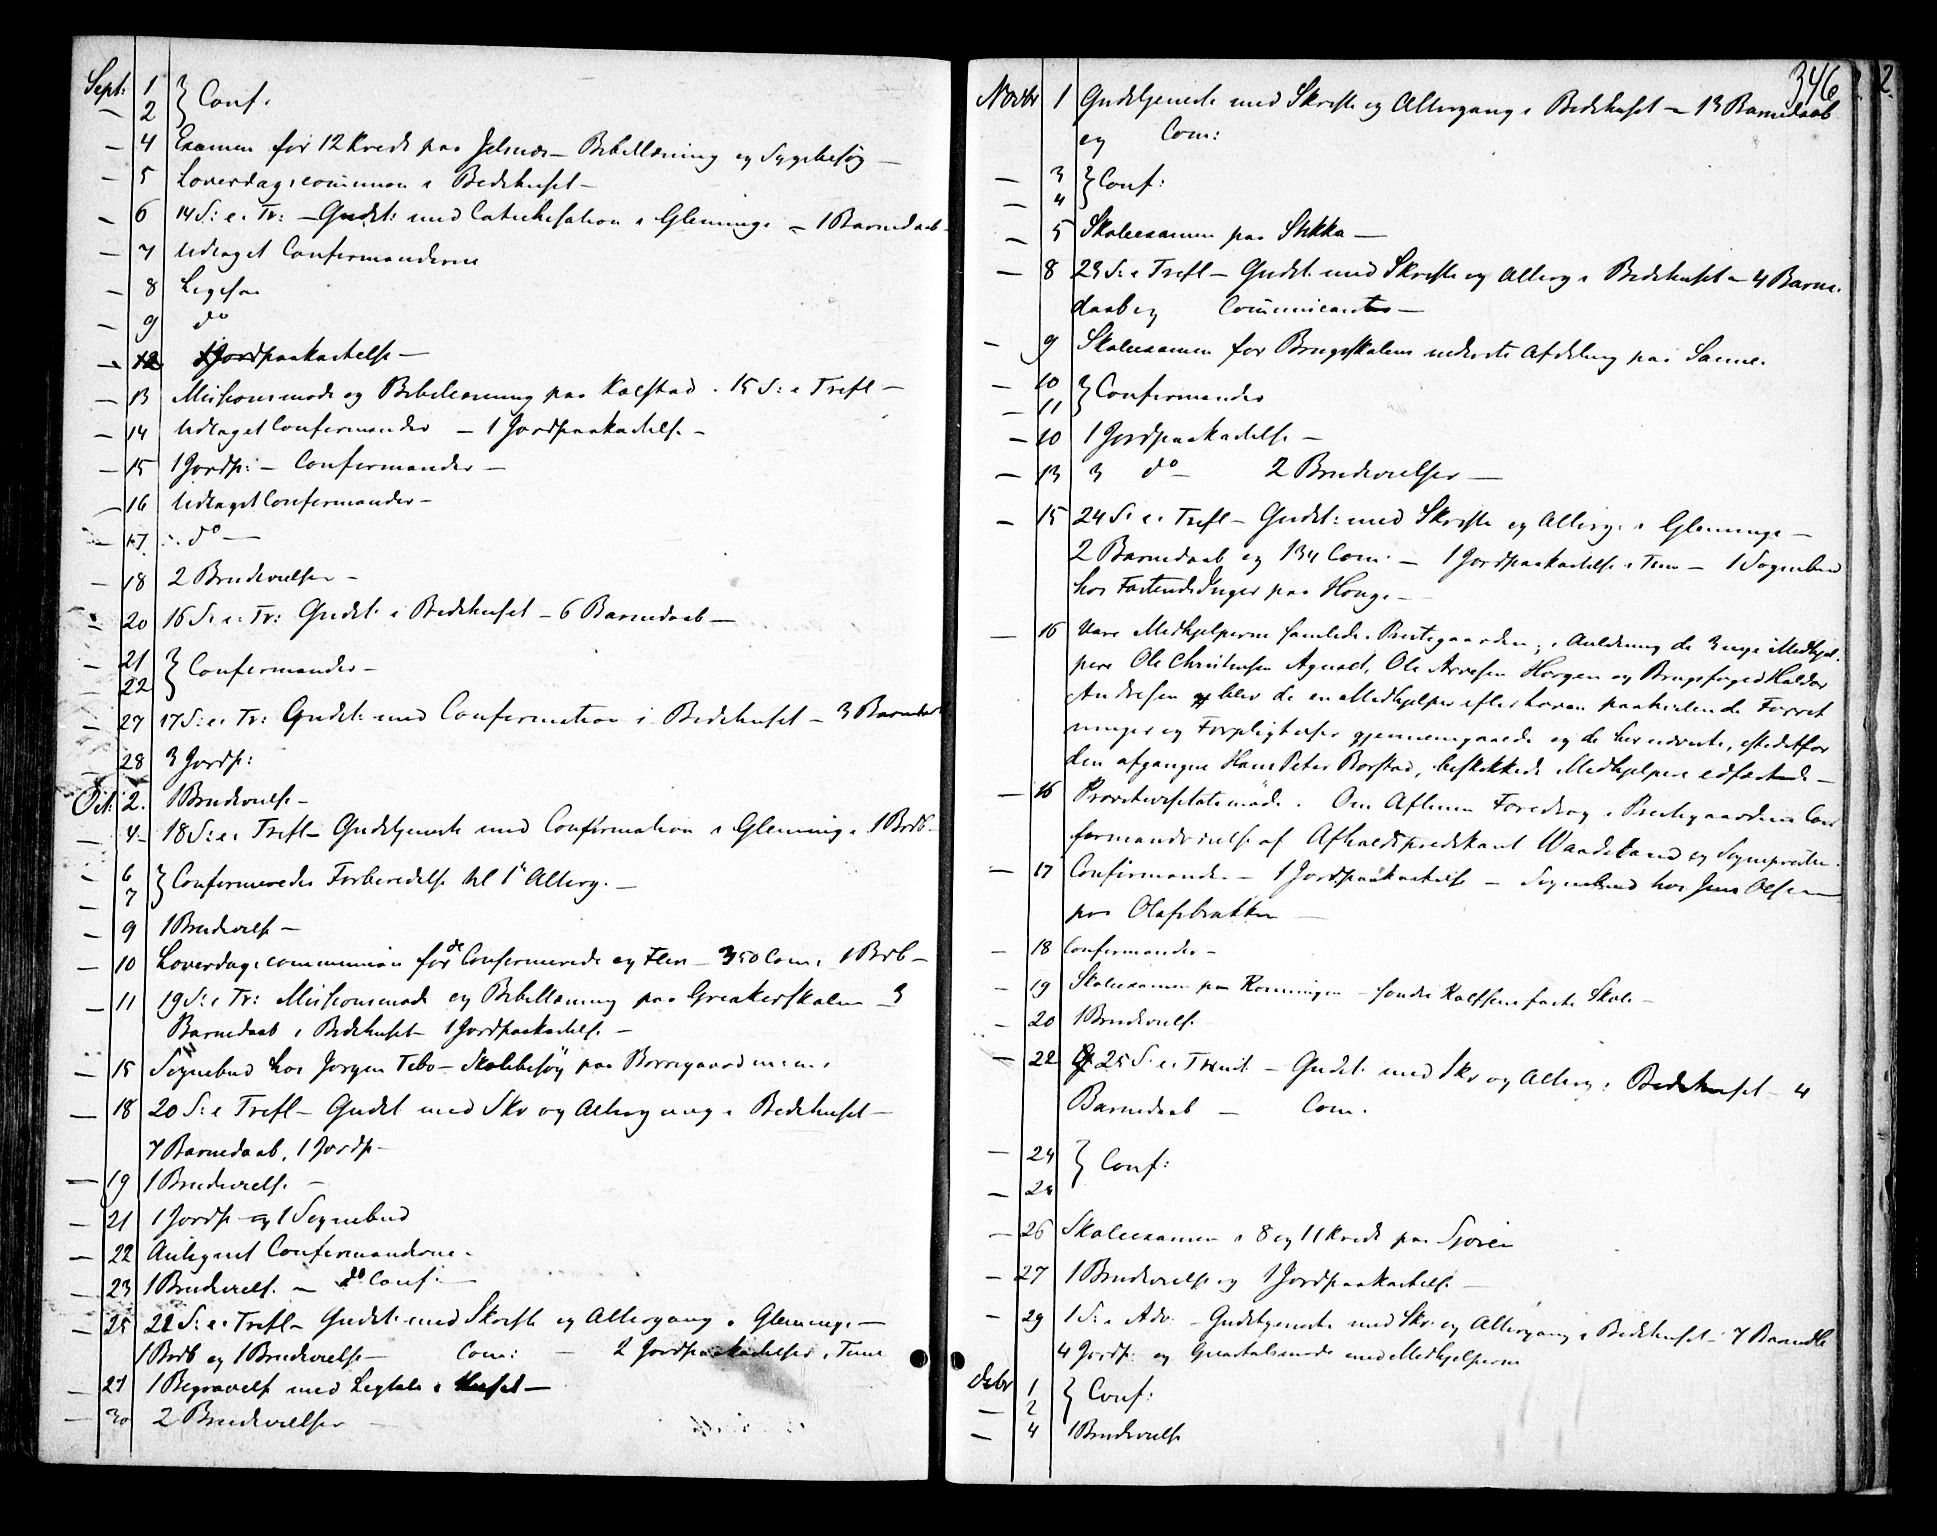 Sept: 1 } Conf.
— 2
— 4 Examen for 12 Kreds paa Jelsnæs — Bibellæsning og Sygebesøg —
— 5 Løverdagscommunion i Bedehuset —
— 6 14 S: e. Tr: — Gudst: med Catechisation i Glemminge — 1 Barnedaab —
— 7 Udtaget Confirmanderne
— 8 Ligesaa
— 9 do
— 12 1 Jordpaakastelse —
— 13 Missionsmøde og Bibellæsning paa Kalstad. 15 S: e Trefl —
— 14 Udtaget Confirmander — 1 Jordpaakastelse —
— 15 1 Jordp: — Confirmander —
— 16 Udtaget Confirmander —
— 17 do —
— 18 2 Brudevielser —
— 20 16 S. e. Tr: Gudst. i Bedehuset — 6 Barnedaab —
— 21 } Confirmander —
— 22
— 27 17 S: e. Tr: Gudst. med Confirmation i Bedehuset — 3 Barnedaab
— 28 3 Jordp:
Oct: 2. 1 Brudevielse —
— 4 18 S: e. Trefl — Gudstjeneste med Confirmation i Glemminge 1 Brdb —
— 6 } Confirmeredes Forberedelse til 1e Alterg. —
— 7
— 9 1 Brudevielse —
— 10 Løverdagscommunion for de Confirmerede og Flere — 350 Com. 1 Brdb —
— 11 19 S: e Tr: Missionsmøde og Bibellæsning paa Greakerskolen — 3
Barnedaab i Bedehuset — 1 Jordpaakastelse —
— 15 Sognebud hos Jørgen Tebo — Skolebesøg paa Borregaard
— 18 20 S: e Trefl — Gudst med Skr og Altergang i Bedehuset —
7 Barnedaab, 1 Jordp —
— 19 1 Brudevielse —
— 21 1 Jordp og 1 Sognebud
— 22 Antegnet Confirmanderne —
— 23 1 Brudevielse — do Conf. —
— 25 21 S: e. Trefl — Gudst. med Skrifte og Altergang i Glemminge —
1 Brdb og 1 Brudevielse — Com: — 2 Jordpaakastelser i Tune
— 27 1 Begravelse med Ligtale i Huset —
— 30 2 Brudevielser —
346
Novbr 1 Gudstjeneste med Skrifte og Altergang i Bedehuset — 13 Barnedaab
og Com:
— 3 } Conf:
— 4
— 5 Skoleexamen paa Stikka —
— 8 23 S. e Trefl — Gudst. med Skrifte og Alterg i Bedehuset — 4 Barne-
daab og Communicanter —
— 9 Skoleexamen for Brugsskolens nederste Afdeling paa Sanne.
— 10 } Confirmander
— 11
— 10 1 Jordpaakastelse —
— 13 3 do — 2 Brudevielser —
— 15 24 S. e. Trefl — Gudst: med Skrifte og Alterg. i Glemminge —
2 Barnedaab og 134 Com: — 1 Jordpaakastelse i Tune — 1 Sognebud
hos Inger paa Hauge —
— 16 Vare Medhjelperne samlede i Prestegaarden; i Anledning de 3 nye Medhjel-
pere Ole Christensen Agnalt, Ole Arvesen Horgen og Brugsfoged Haldor
Andresen blev de en Medhjelper efter Loven paahvilende Forret
ninger og Forpligtelser gjennemgaaede og de her nævnte, istedetfor
den afgangne Hans Peter Borstad, beskikkede Medhjelpere edfæstede —
— 16 Provstevisitatsmøde. Om Aftenen Foredrag i Prestegaardens Con
firmandværelse af Afholdsprædikant Waadeland og Sognepræsten.
— 17 Confirmander — 1 Jordpaakastelse — Sognebud hos Jens Olsen
paa Olafsbrakken —
— 18 Confirmander —
— 19 Skoleexamen paa Rønningen — søndre Rolfsens faste Skole —
— 20 1 Brudevielse
— 22 25 S. e. Trinit — Gudst. med Skr og Alterg i Bedehuset — 4
Barnedaab — Com.
— 24 } Conf:
— 25
— 26 Skoleexamen i 8 og 11 Kreds paa
— 27 1 Brudevielse og 1 Jordpaakastelse —
— 29 1 S. i Adv. — Gudstjeneste med Skr. og Altergang i Bedehuset — 7 Barnedb
4 Jordp: og Quartalsmøde med Medhjelperne
Debr 1 } Conf:
— 2
— 4 1 Brudevielse